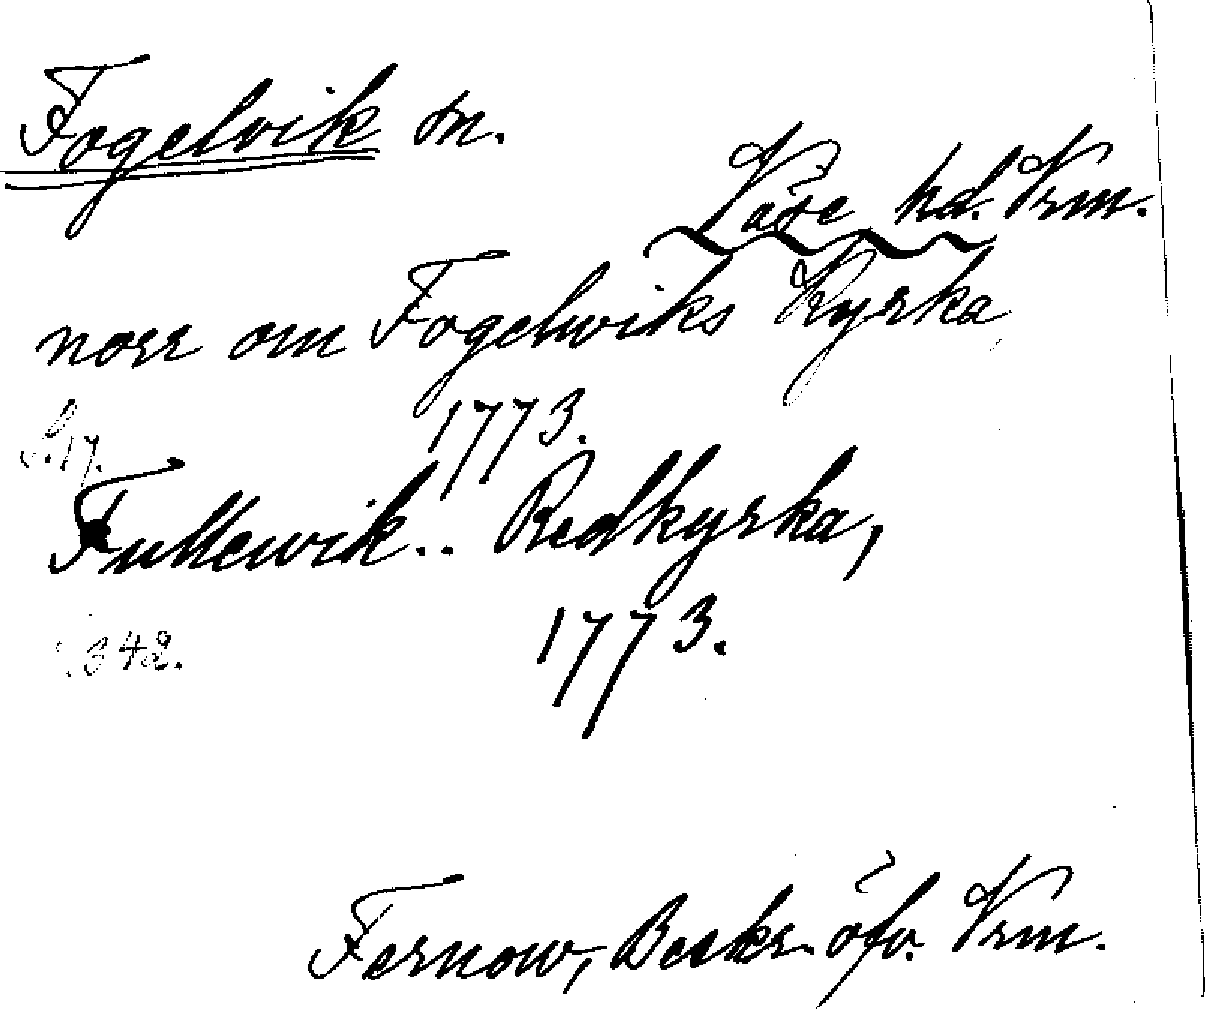 Fogelvik sn.
Väse hd. Vrm.
norr om Fogelwiks Kyrka,
S. 17. 1773.
Fullewik .. Redkyrka,
S. 342. 1773.
Fernow, Beskr. öfv. Vrm.